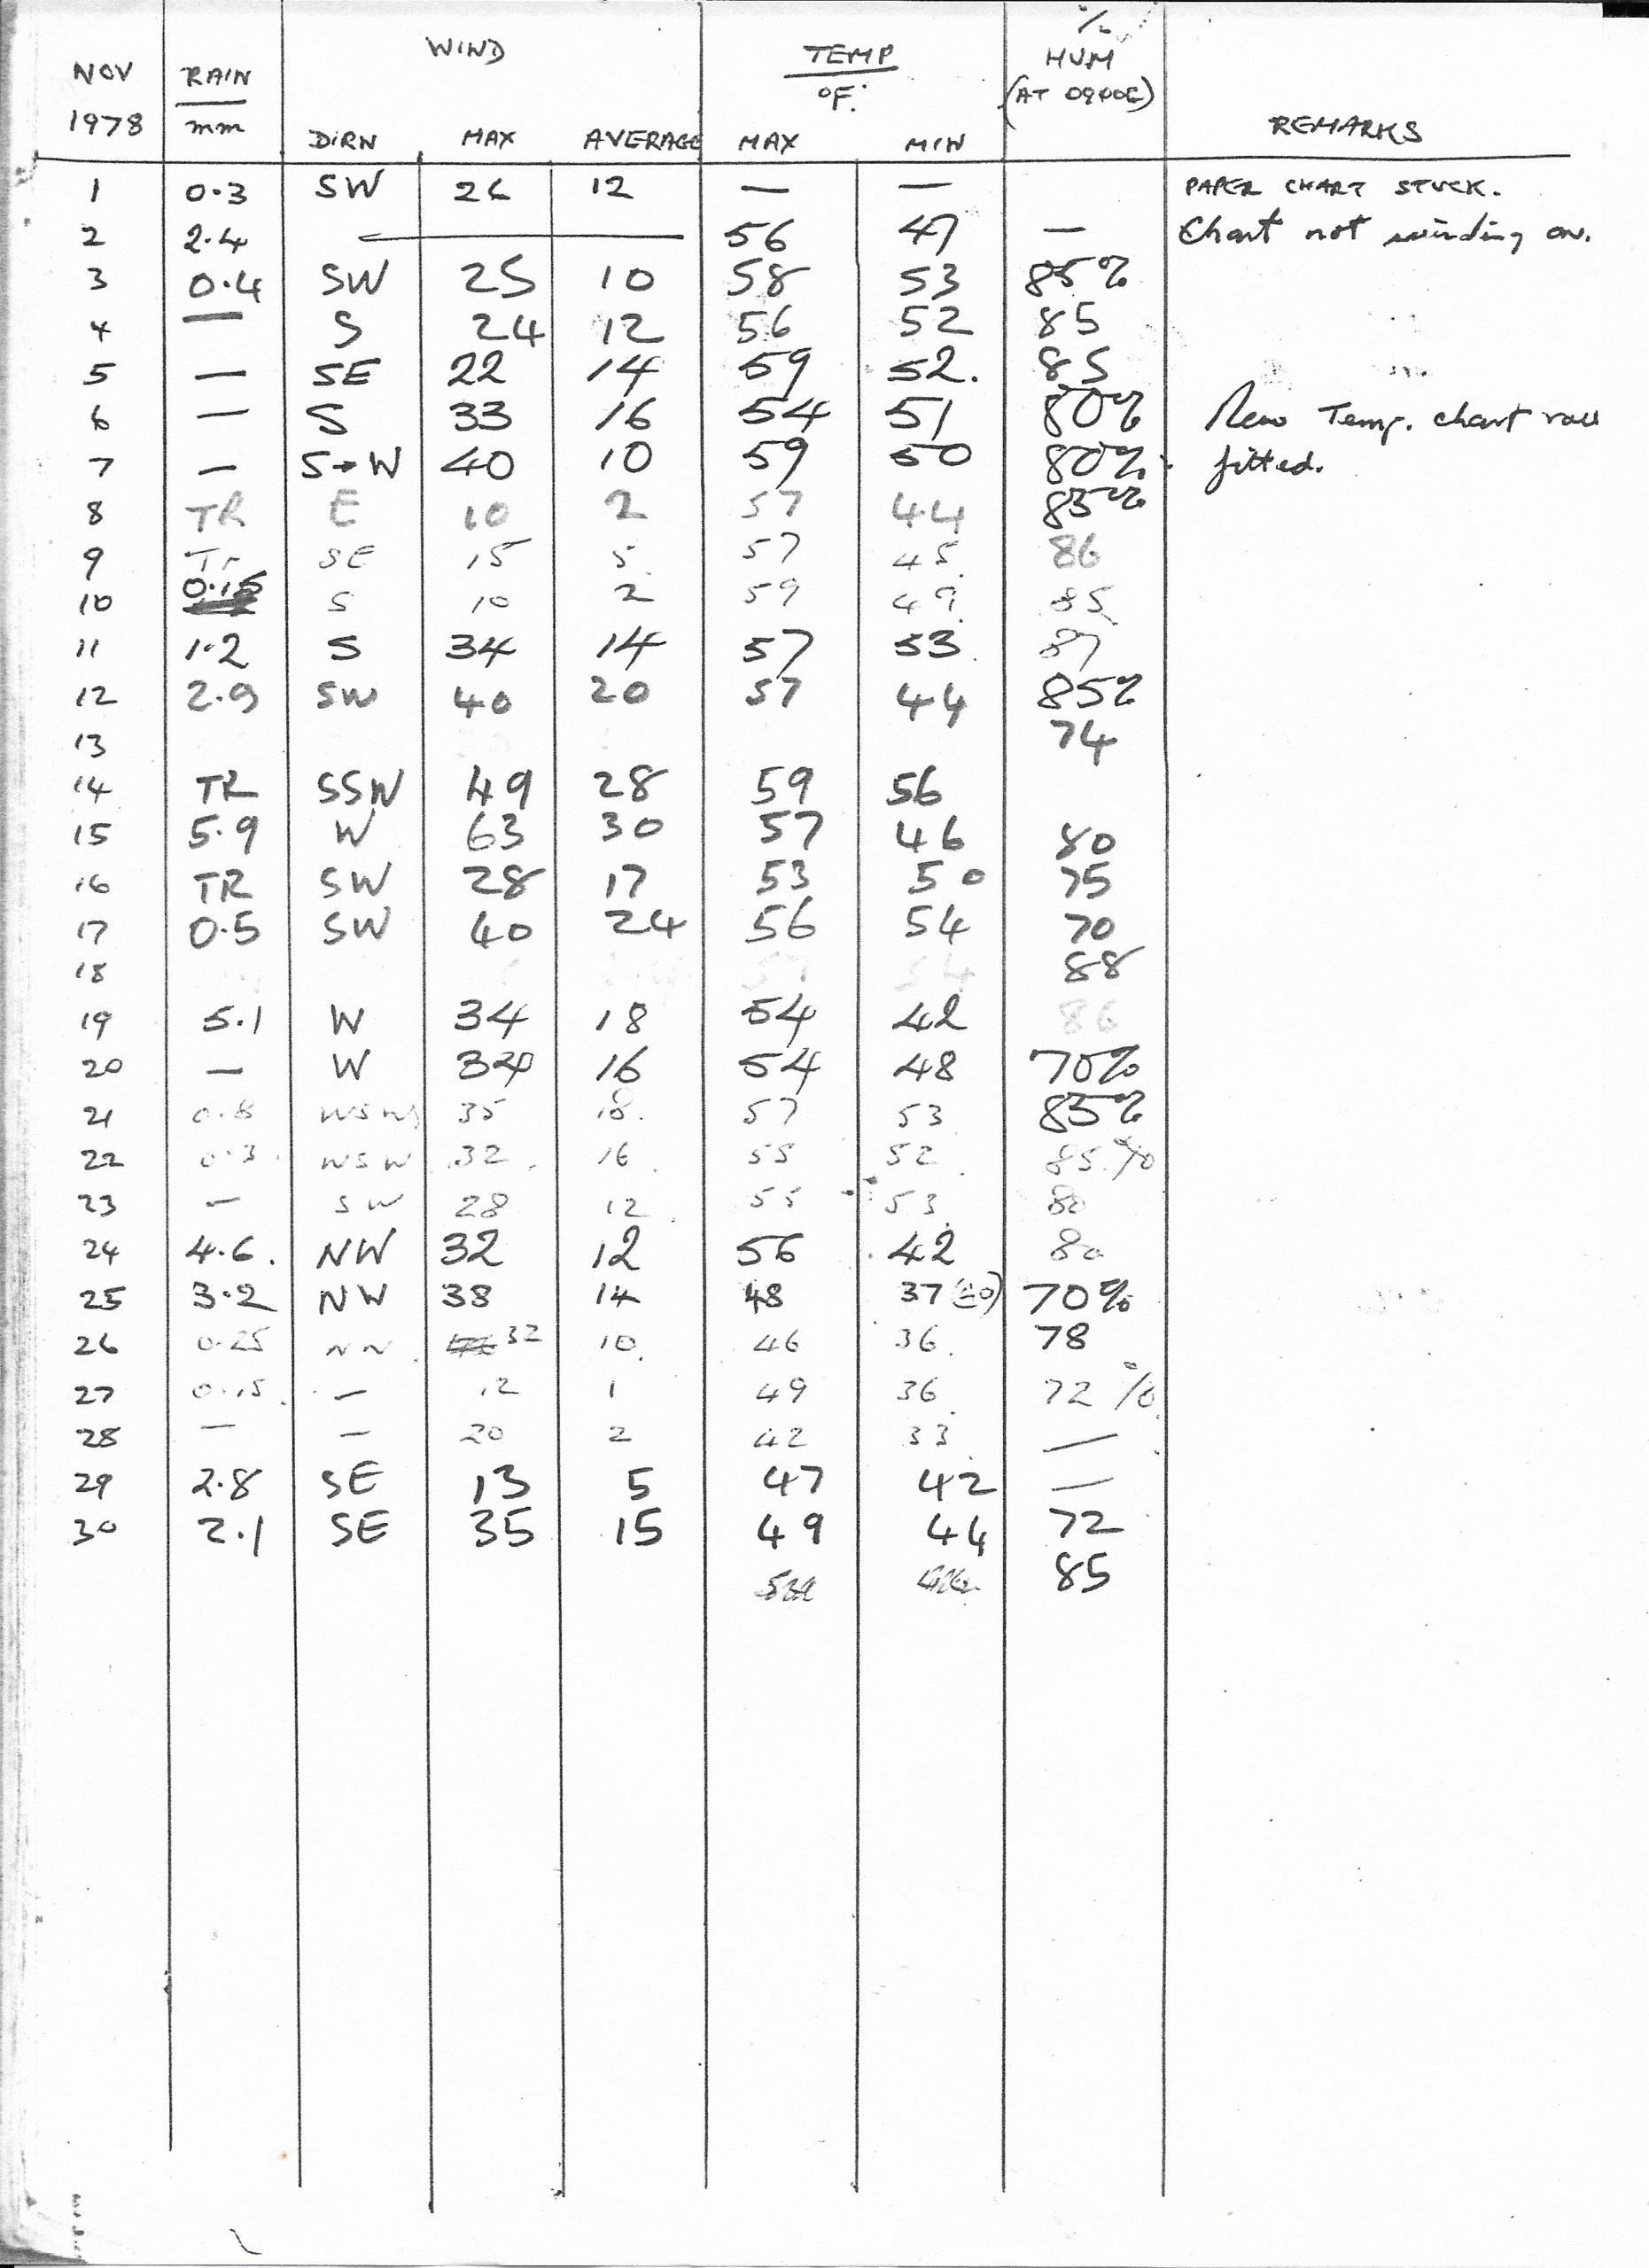 NOV 1978 RAIN mm WIND DIRN MAX AVERAGE TEMP °F. MAX MIN % HUM (AT 0900E) REMARKS
1 0.3 SW 26 12 — — PAPER CHART STUCK.
2 2.4 — 56 47 — Chart not winding on.
3 0.4 SW 25 10 58 53 85%
4 — S 24 12 56 52 85
5 — SE 22 14 59 52. 85
6 — S 33 16 54 51 80% New Temp. chart roll
7 — S→W 40 10 59 50 80% fitted.
8 TR E 10 2 57 44 85%
9 Tr SE 15 5 57 45 86
10 0.15 S 10 2 59 49 85
11 1.2 S 34 14 57 53 87
12 2.9 SW 40 20 57 44 85%
13 74
14 TR SSW 49 28 59 56
15 5.9 W 63 30 57 46 80
16 TR SW 28 17 53 50 75
17 0.5 SW 40 24 56 54 70
18 88
19 5.1 W 34 18 54 42 86
20 — W 34 16 54 48 70%
21 0.8 WSW 35 18. 57 53 85%
22 0.3 WSW 32 16 55 52 85%
23 — SW 28 12 55 53 80
24 4.6. NW 32 12 56 42 80
25 3.2 NW 38 14 48 37 70%
26 0.25 32 10 46 36 78
27 0.15 — 12 1 49 36 72%
28 — — 20 2 42 33 —
29 2.8 SE 13 5 47 42 —
30 2.1 SE 35 15 49 44 72
85